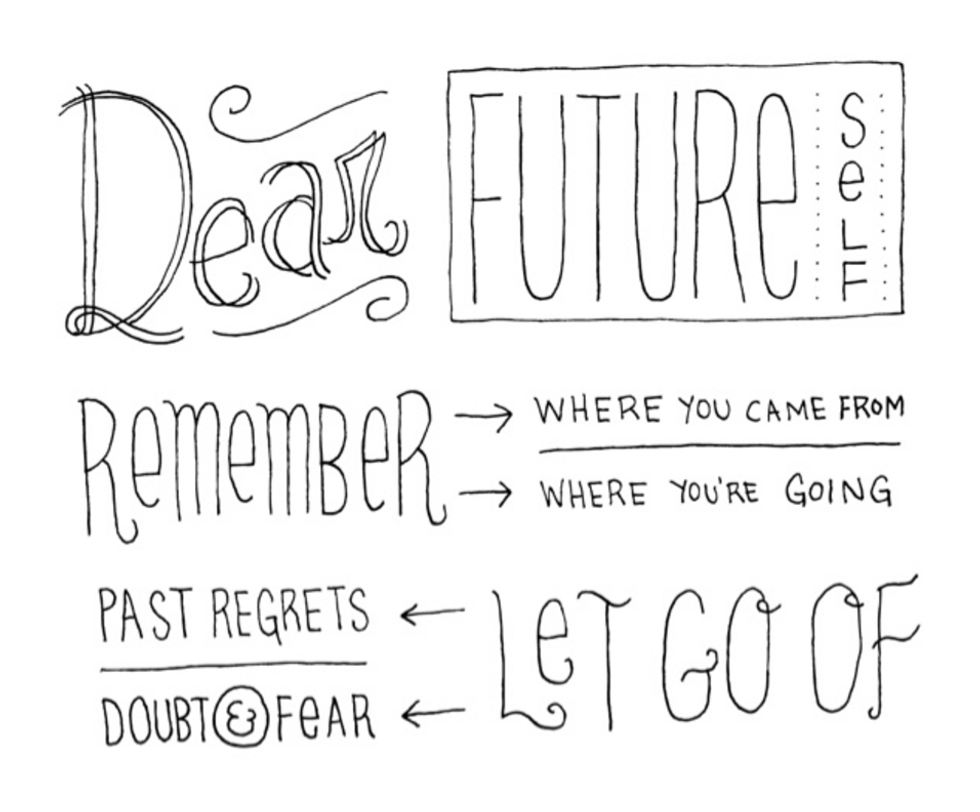 Dear
FUTURe SeLF
ReMeMBeR → WHERE YOU CAME FROM
→ WHERE YOU'RE GOING
LeT GO OF
← PAST REGRETS
← DOUBT & FeAR